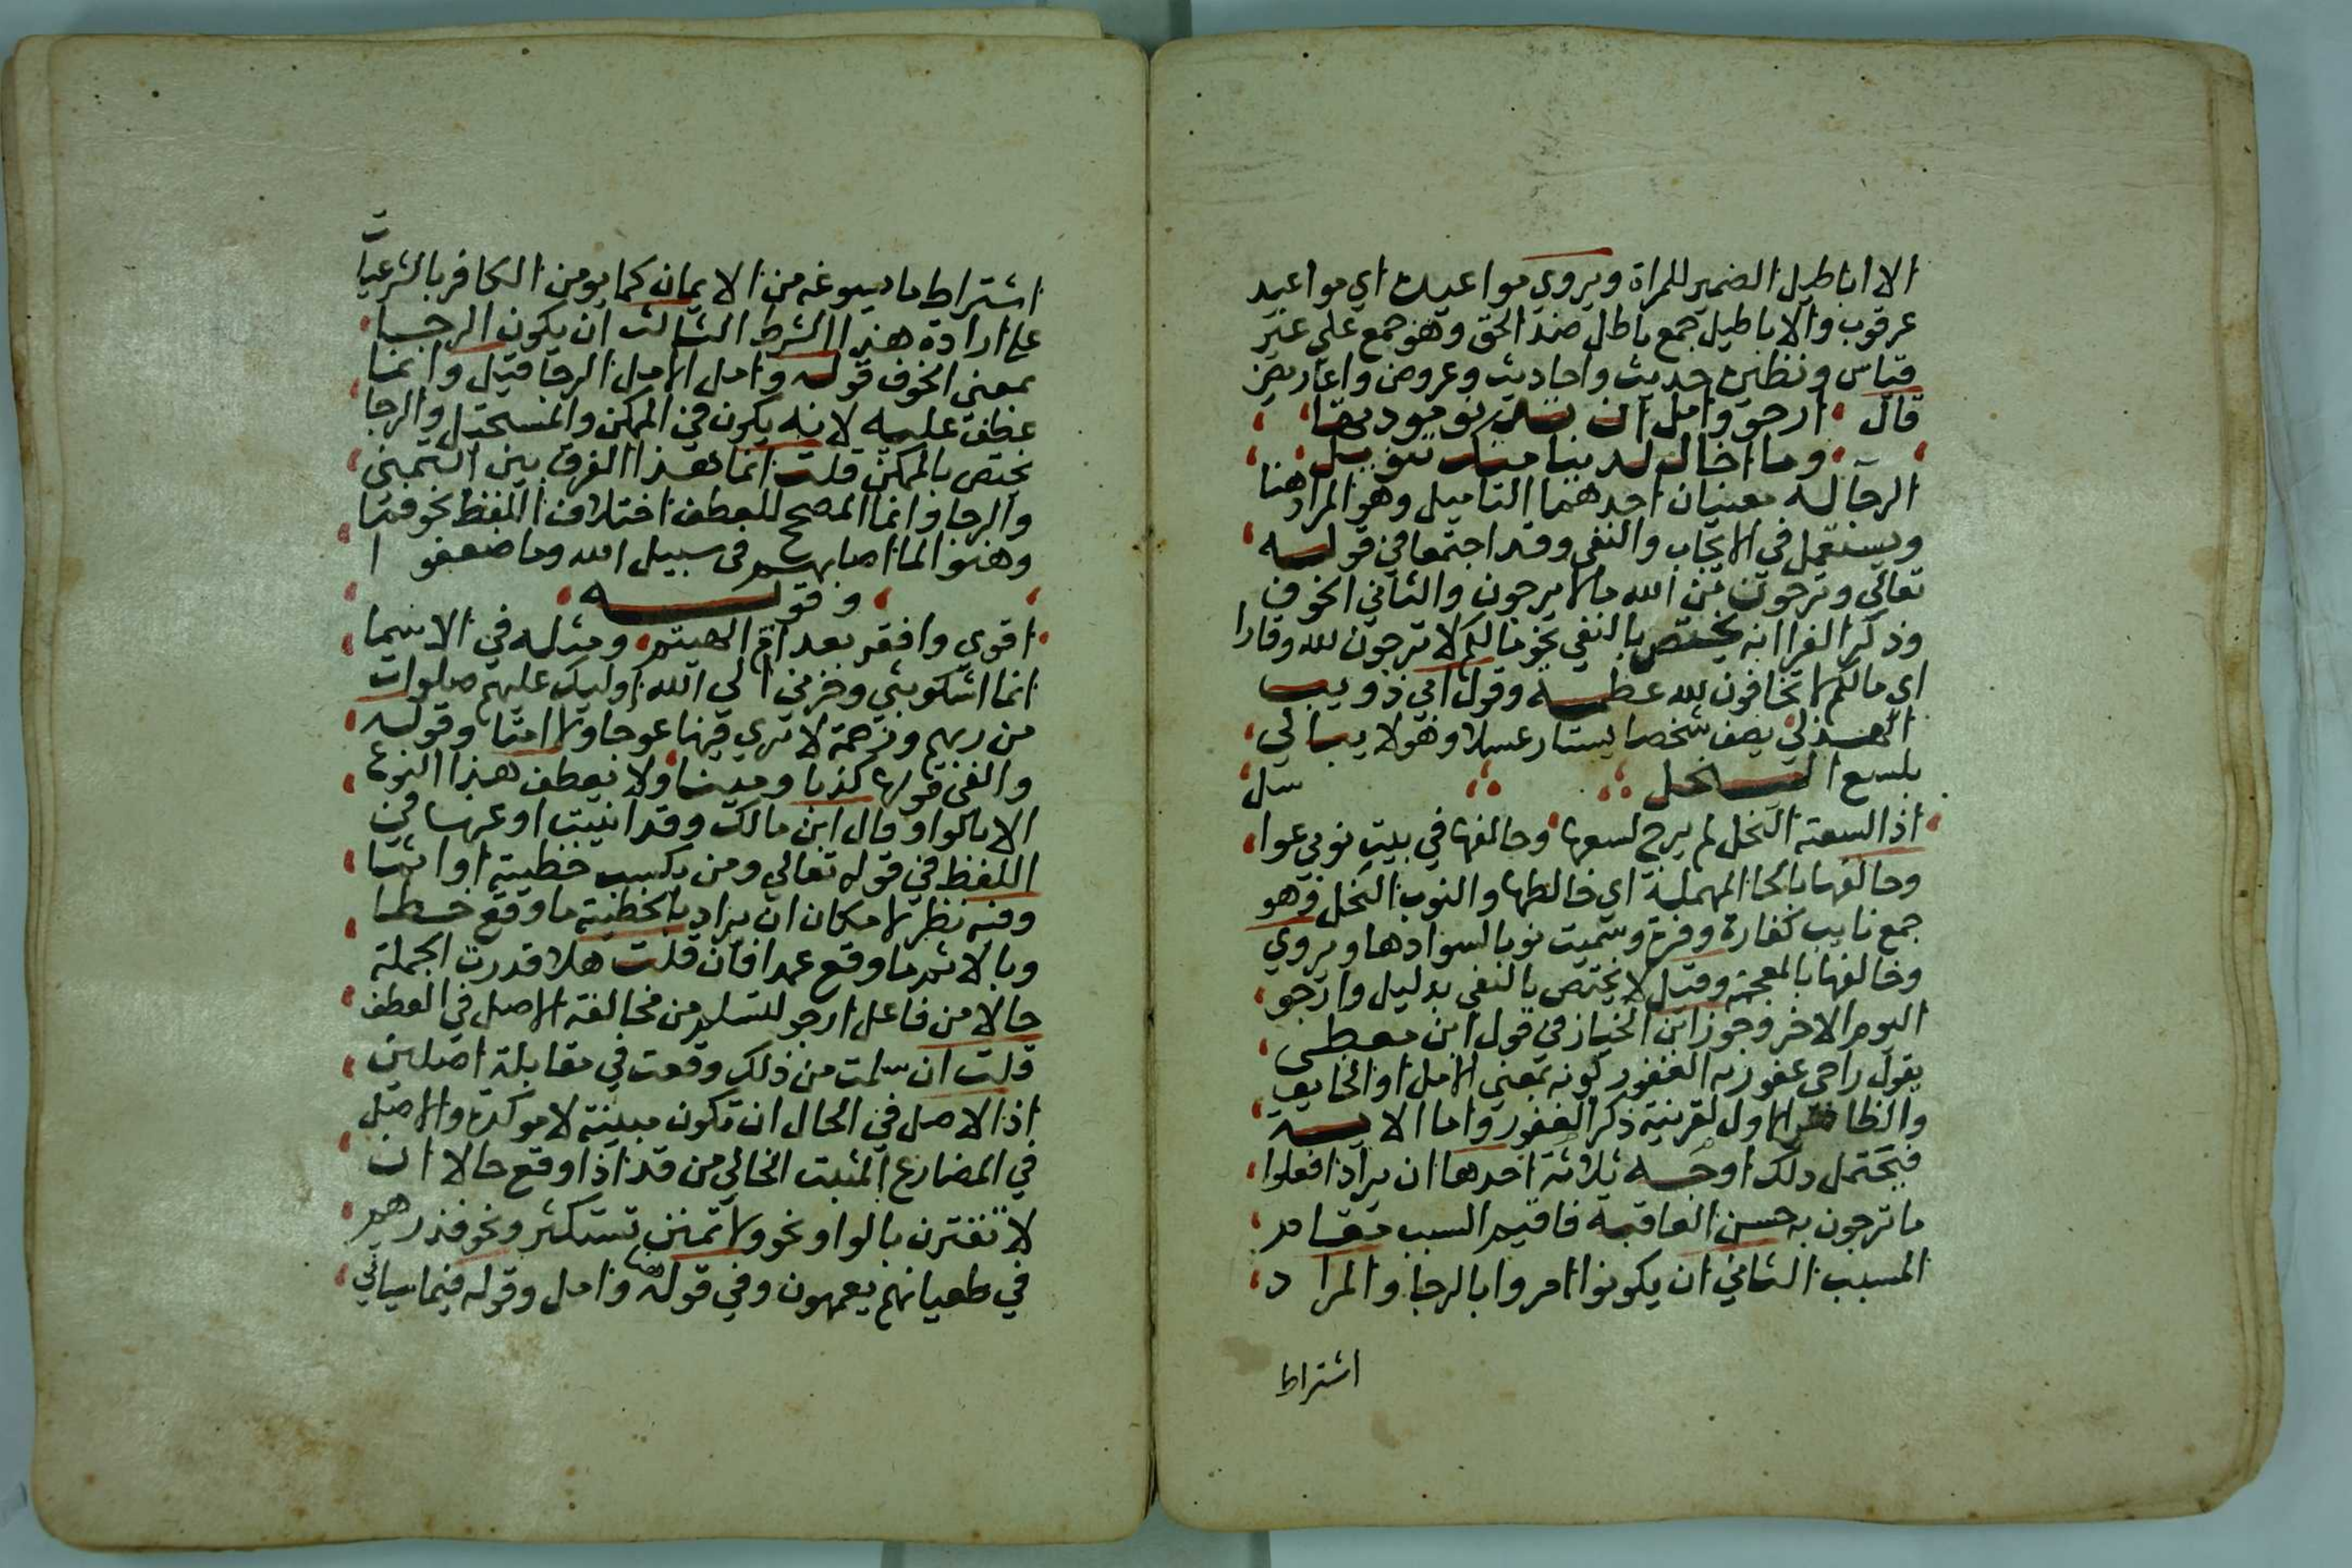 الا اباطيل الضمير للمراة ويروي مواعيده اي مواعيد
عرقوب والاباطيل جمع باطل ضد الحق وهو جمع علي غير
قياس ونظيره حديث واحاديث وعروض واعاريض
قال ارجو وامل ان تدنو مودتها
وما اخال لدينا منك تنويل
الرجا له معنيان احدهما التاميل وهو المراد هنا
ويستعمل في الايجاب والنفي وقد اجتمعا في قوله
تعالي وترجون من الله مالا يرجون والثاني الخوف
وذكر الفرا انه يختص بالنفي نحو مالكم لا ترجون لله وقارا
اي مالكم لا تخافون لله عظمة وقول ابي ذويب
الهذلي يصف شخصا يشتار عسلا وهو لا يبالي
بلسع النحل
اذا لسعته النحل لم يرج لسعها وحالفها في بيت نوب عوا سل
وحالفها بالحا المهملة اي خالطها والنوب النحل وهو
جمع نايب كفاره وفره وسميت نوبا لسوادها ويروي
وخالفها بالمعجمة وقيل لا يختص بالنفي بدليل وارجو
اليوم الاخر وجوز ابن الخباز في قول ابن معطي
يقول راجي عفو ربه الغفور كونه بمعني الامل او الخايف
والظاهر الاول لقرينة ذكر الغفور واما الاية
فيحتمل ذلك اوجه ثلاثة احدها ان يراد افعلوا
ما ترجون به حسن العاقبة فاقيم السبب مقام
المسبب الثاني ان يكونوا امروا بالرجا والمراد
اشتراط
اشتراط ما يسوغه من الايمان كما يومن الكافر بالشرعيات
علي ارادة هذا الشرط الثالث ان يكون الرجا
بمعني الخوف قوله وامل الامل الرجا قيل وانما
عطف عليه لانه يكون في الممكن والمستحيل والرجا
يختص بالممكن قلت انما هذا الفرق بين التمني
والرجا وانما المصحح للعطف اختلاف اللفظ نحو فما
وهنوا لما اصابهم في سبيل الله وما ضعفوا
وقوله
اقوي وافقر بعد ام الهيثم ومثله في الاسما
انما اشكو بثي وحزني الي الله اوليك عليهم صلوات
من ربهم ورحمة لا تري فيها عوجا ولا امتا وقوله
والفي قولها كذبا ومينا ولا يعطف هذا النوع
الا بالواو قال ابن مالك وقد انيبت او عنها في
اللفظ في قوله تعالي ومن يكسب خطيئة او اثما
وفيه نظر لامكان ان يراد بالخطيئة ما وقع خطا
وبالاثم ما وقع عمدا فان قلت هلا قدرت الجملة
حالا من فاعل ارجو لتسلم من مخالفة الاصل في العطف
قلت ان سلمت من ذلك وقعت في مقابلة اصلين
اذ الاصل في الحال ان تكون مبينة لا موكدة والاصل
في المضارع المثبت الخالي من قد اذا وقع حالا ان
لا تقترن بالواو نحو ولا تمنن تستكثر ونحو فنذرهم
في طغيانهم يعمهون وفي قوله وامل وقوله فيما سياتي